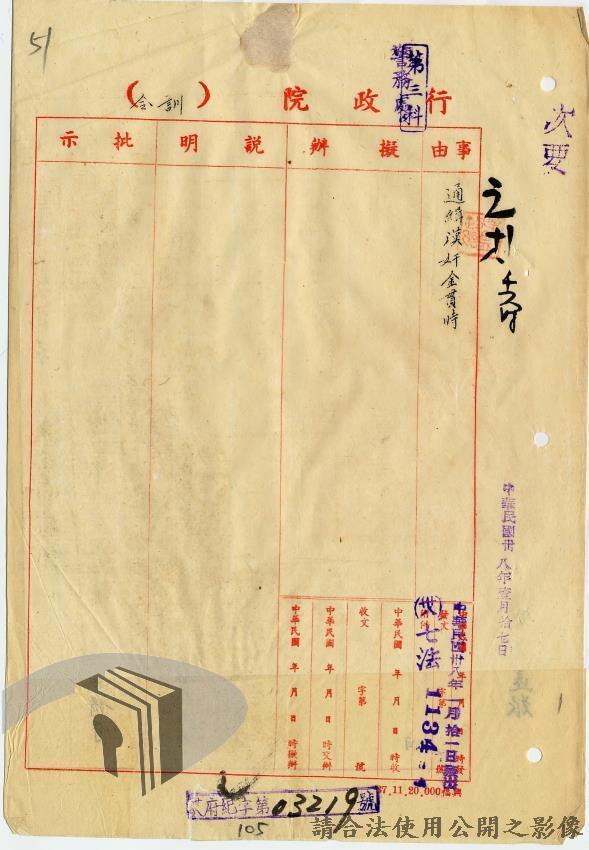 51
第三科
警務處
行政院（訓令）
次要
事由
擬辦
說明
批示
通緝漢奸金貫時
中華民國卅八年壹月拾七日
中華民國卅八年一月拾一日
發文
附件
字第
號
(卅)七法 1134
中華民國 年 月 日 時收
收文 字第 號
中華民國 年 月 日 時交辦
中華民國 年 月 日 時擬辦
37.11.20.000.福興
府紀字第03219號
105
請合法使用公開之影像